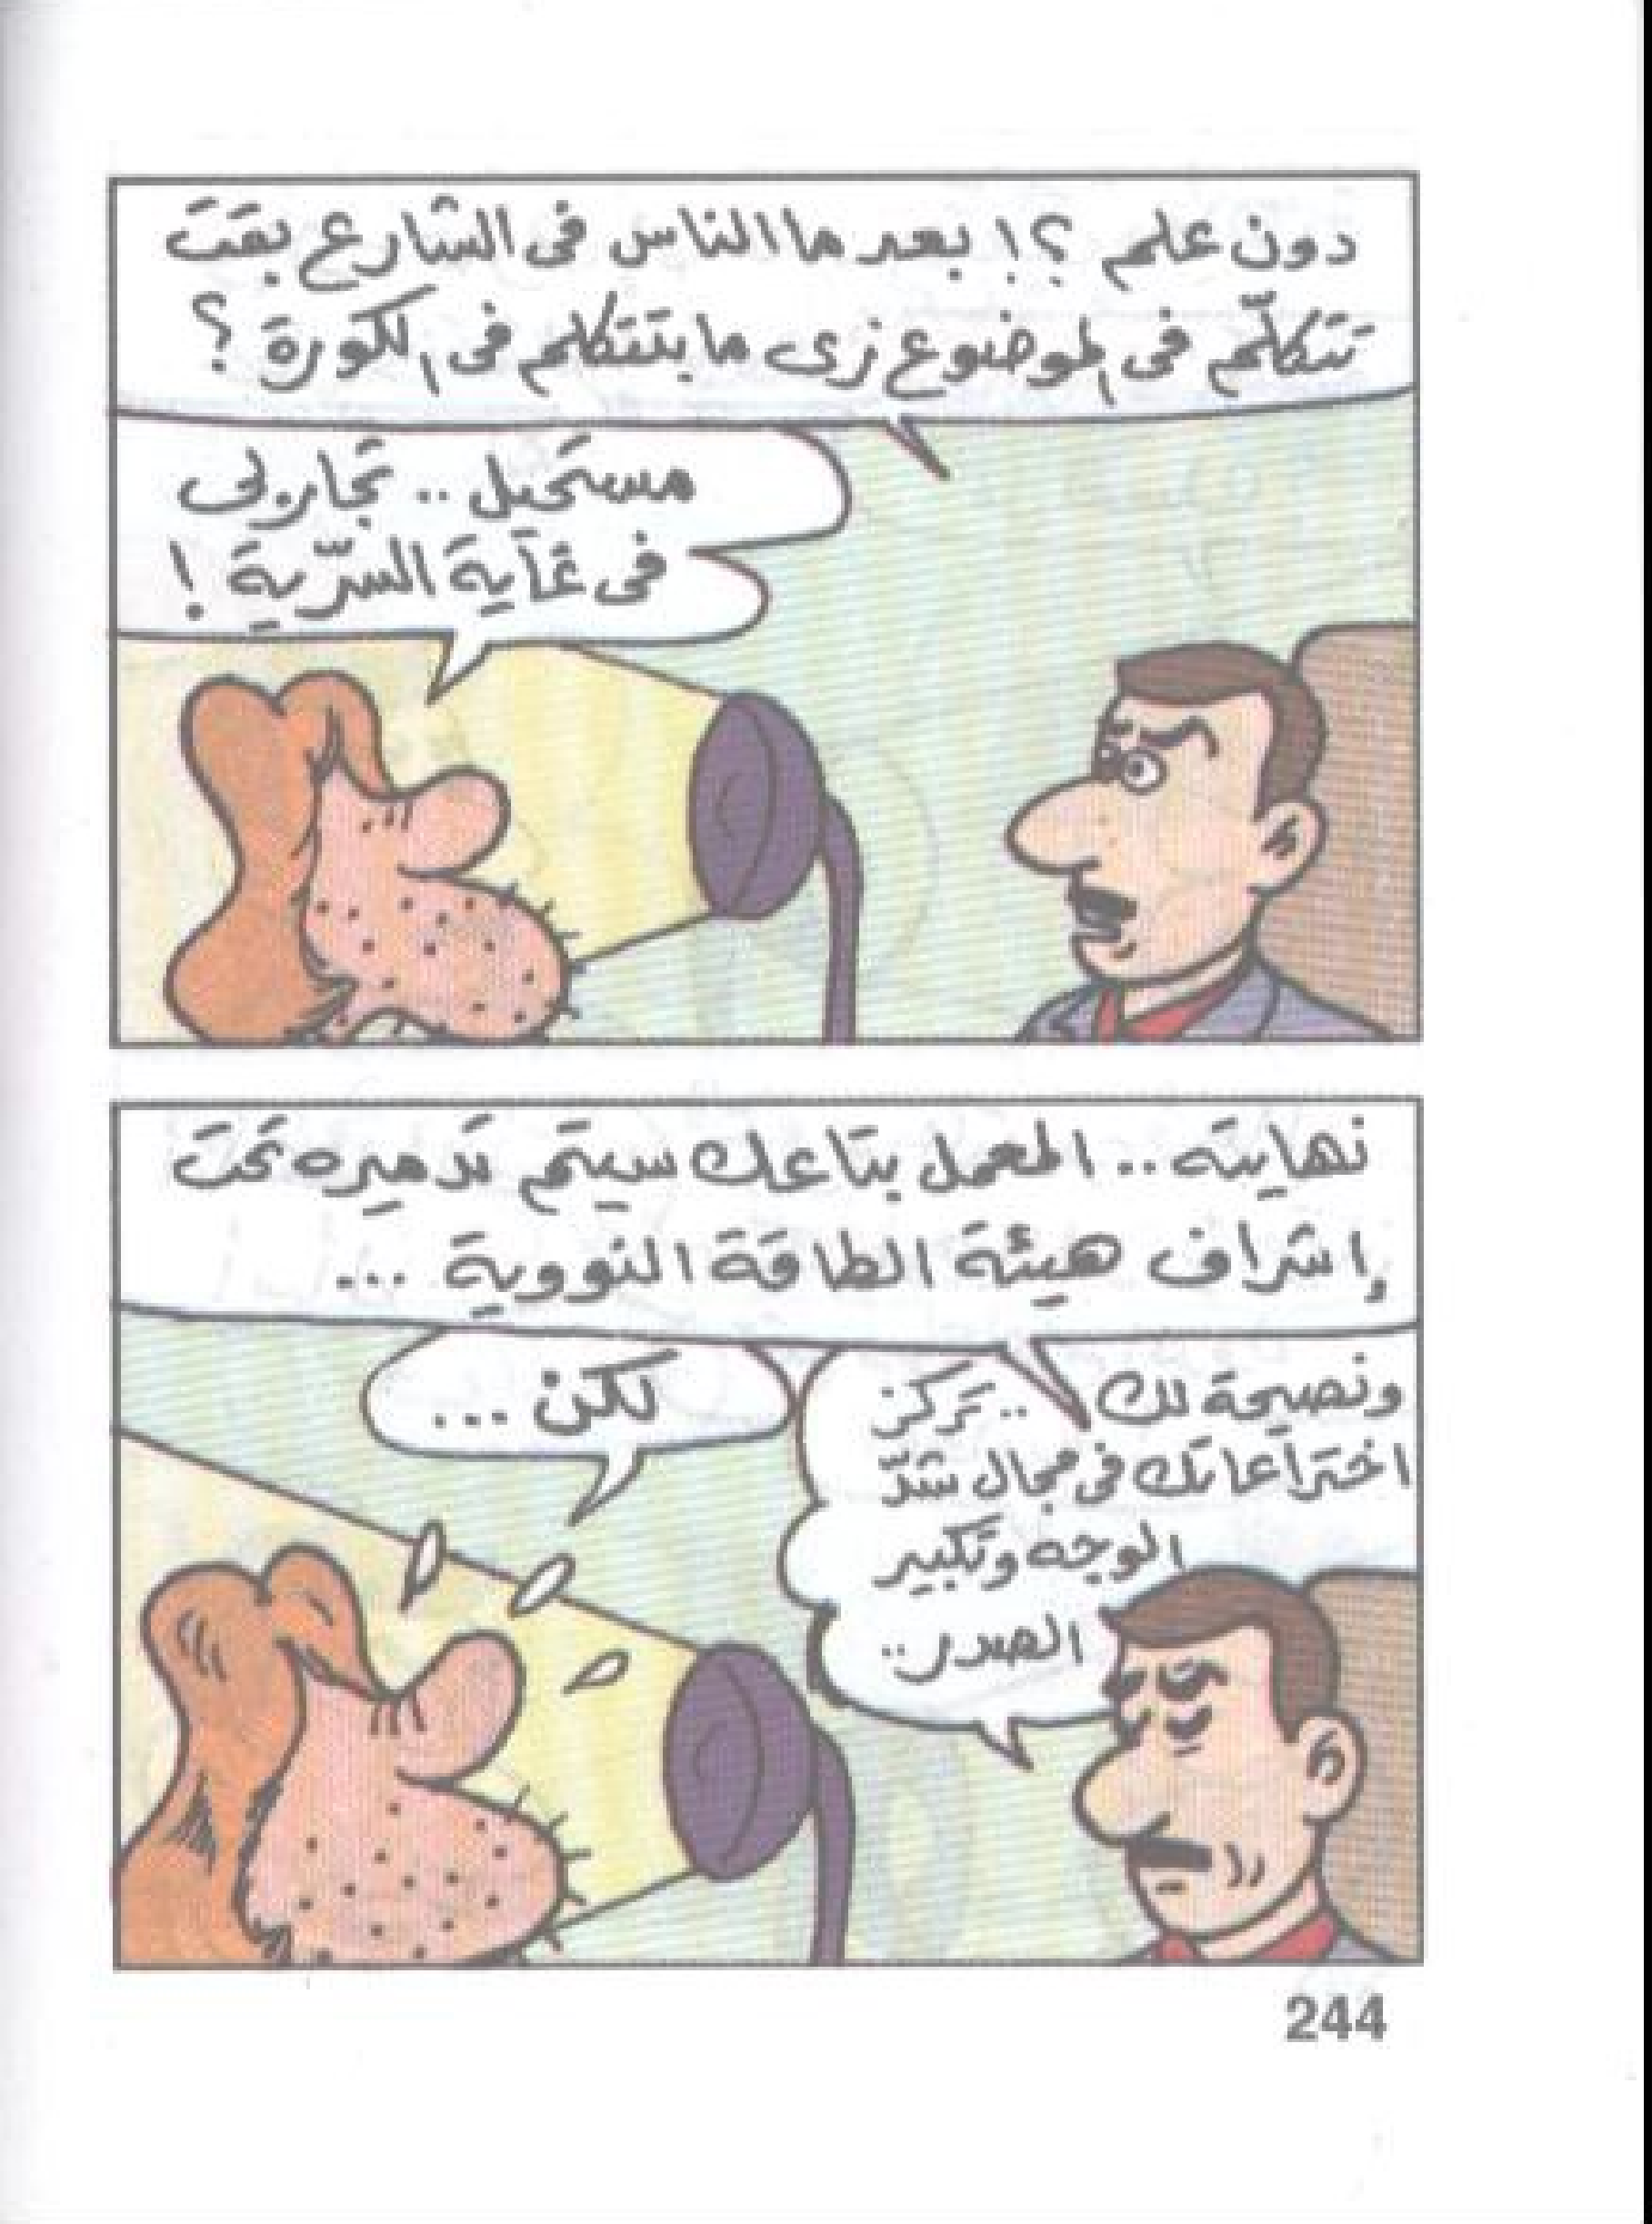 دون علم ؟! بعد ما الناس فى الشارع بقت
تتكلّم فى الموضوع زى ما بتتكلم فى الكورة ؟
مستحيل .. تجاربى
فى غاية السرّية !
نهايته .. المعمل بتاعك سيتم تدميره تحت
إشراف هيئة الطاقة النووية ...
ونصيحة لك .. تركز
اختراعاتك فى مجال شدّ
الوجه وتكبير
الصدر ..
لكنْ ...
244